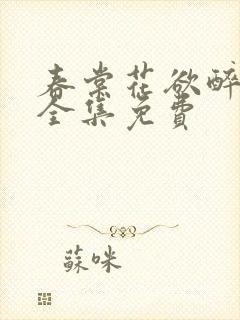 春棠花欲醉
全集免費
蘇咪